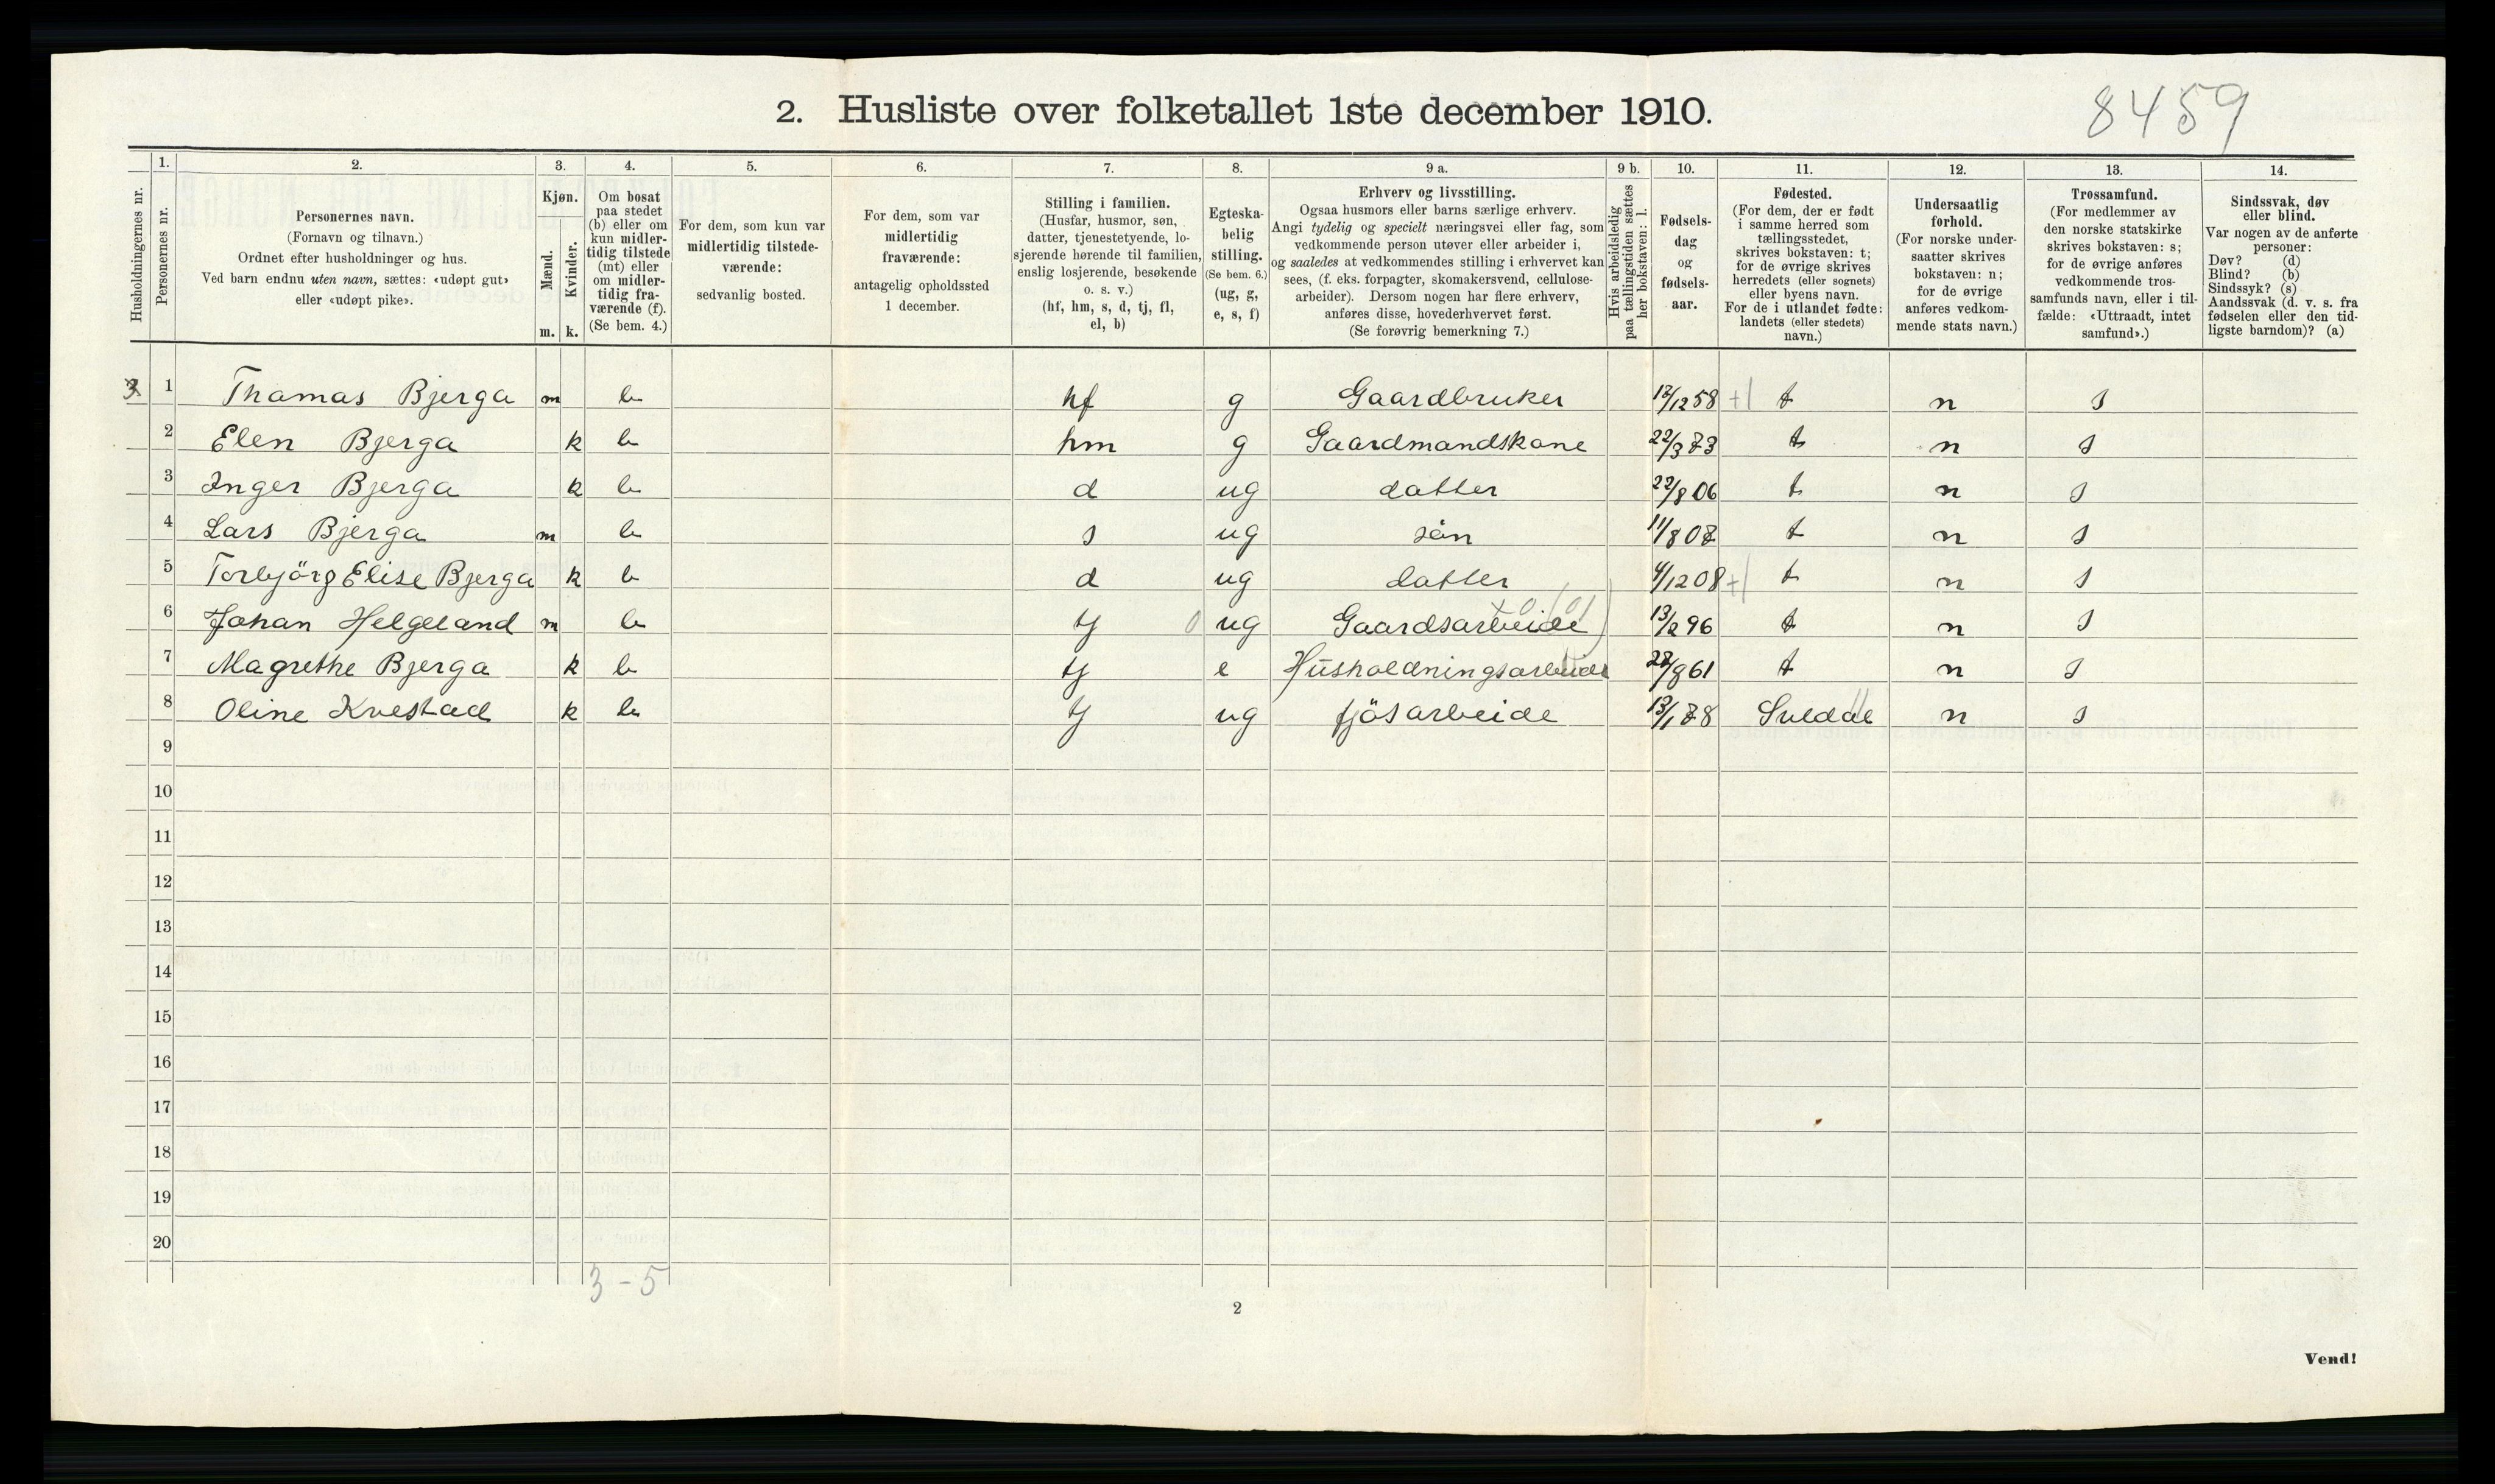 2. Husliste over folketallet 1ste december 1910.
8459
Husholdningernes nr.
1.
Personernes nr.
2.
Personernes navn.
(Fornavn og tilnavn.)
Ordnet efter husholdninger og hus.
Ved barn endnu uten navn, sættes: «udøpt gut»
eller «udøpt pike».
3.
Kjøn.
Mænd.
Kvinder.
m. k.
4.
Om bosat
paa stedet
(b) eller om
kun midler-
tidig tilstede
(mt) eller
om midler-
tidig fra-
værende (f).
(Se bem. 4.)
5.
For dem, som kun var
midlertidig tilstede-
værende:
sedvanlig bosted.
6.
For dem, som var
midlertidig
fraværende:
antagelig opholdssted
1 december.
7.
Stilling i familien.
(Husfar, husmor, søn,
datter, tjenestetyende, lo-
sjerende hørende til familien,
enslig losjerende, besøkende
o. s. v.)
(hf, hm, s, d, tj, fl,
el, b)
8.
Egteska-
belig
stilling.
(Se bem. 6.)
(ug, g,
e, s, f)
9 a.
Erhverv og livsstilling.
Ogsaa husmors eller barns særlige erhverv.
Angi tydelig og specielt næringsvei eller fag, som
vedkommende person utøver eller arbeider i,
og saaledes at vedkommendes stilling i erhvervet kan
sees, (f. eks. forpagter, skomakersvend, cellulose-
arbeider). Dersom nogen har flere erhverv,
anføres disse, hovederhvervet først.
(Se forøvrig bemerkning 7.)
9 b.
Hvis arbeidsledig
paa tællingstiden sættes
her bokstaven: l.
10.
Fødsels-
dag
og
fødsels-
aar.
11.
Fødested.
(For dem, der er født
i samme herred som
tællingsstedet,
skrives bokstaven: t;
for de øvrige skrives
herredets (eller sognets)
eller byens navn.
For de i utlandet fødte:
landets (eller stedets)
navn.)
12.
Undersaatlig
forhold.
(For norske under-
saatter skrives
bokstaven: n;
for de øvrige
anføres vedkom-
mende stats navn.)
13.
Trossamfund.
(For medlemmer av
den norske statskirke
skrives bokstaven: s;
for de øvrige anføres
vedkommende tros-
samfunds navn, eller i til-
fælde: «Uttraadt, intet
samfund».)
14.
Sindssvak, døv
eller blind.
Var nogen av de anførte
personer:
Døv? (d)
Blind? (b)
Sindssyk? (s)
Aandssvak (d. v. s. fra
fødselen eller den tid-
ligste barndom)? (a)
1 Thamas Bjerga m b hf g Gaardbruker 12/12 58 +1 t n s
2 Elen Bjerga k b hm g Gaardmandskone 22/3 73 t n s
3 Inger Bjerga k b d ug datter 22/8 06 t n s
4 Lars Bjerga m b s ug sön 11/8 07 t n s
5 Torbjörg Elise Bjerga k b d ug datter 4/12 08 +1 t n s
6 Johan Helgeland m b tj 0 ug Gaardsarbeide 13/2 96 t n s
7 Magrethe Bjerga k b tj e Husholdningsarbeide 28/8 61 t n s
8 Oline Kvestad k b tj ug fjösarbeide 13/1 78 Suldal n s
9
10
11
12
13
14
15
16
17
18
19
20
3 - 5
2
Vend!